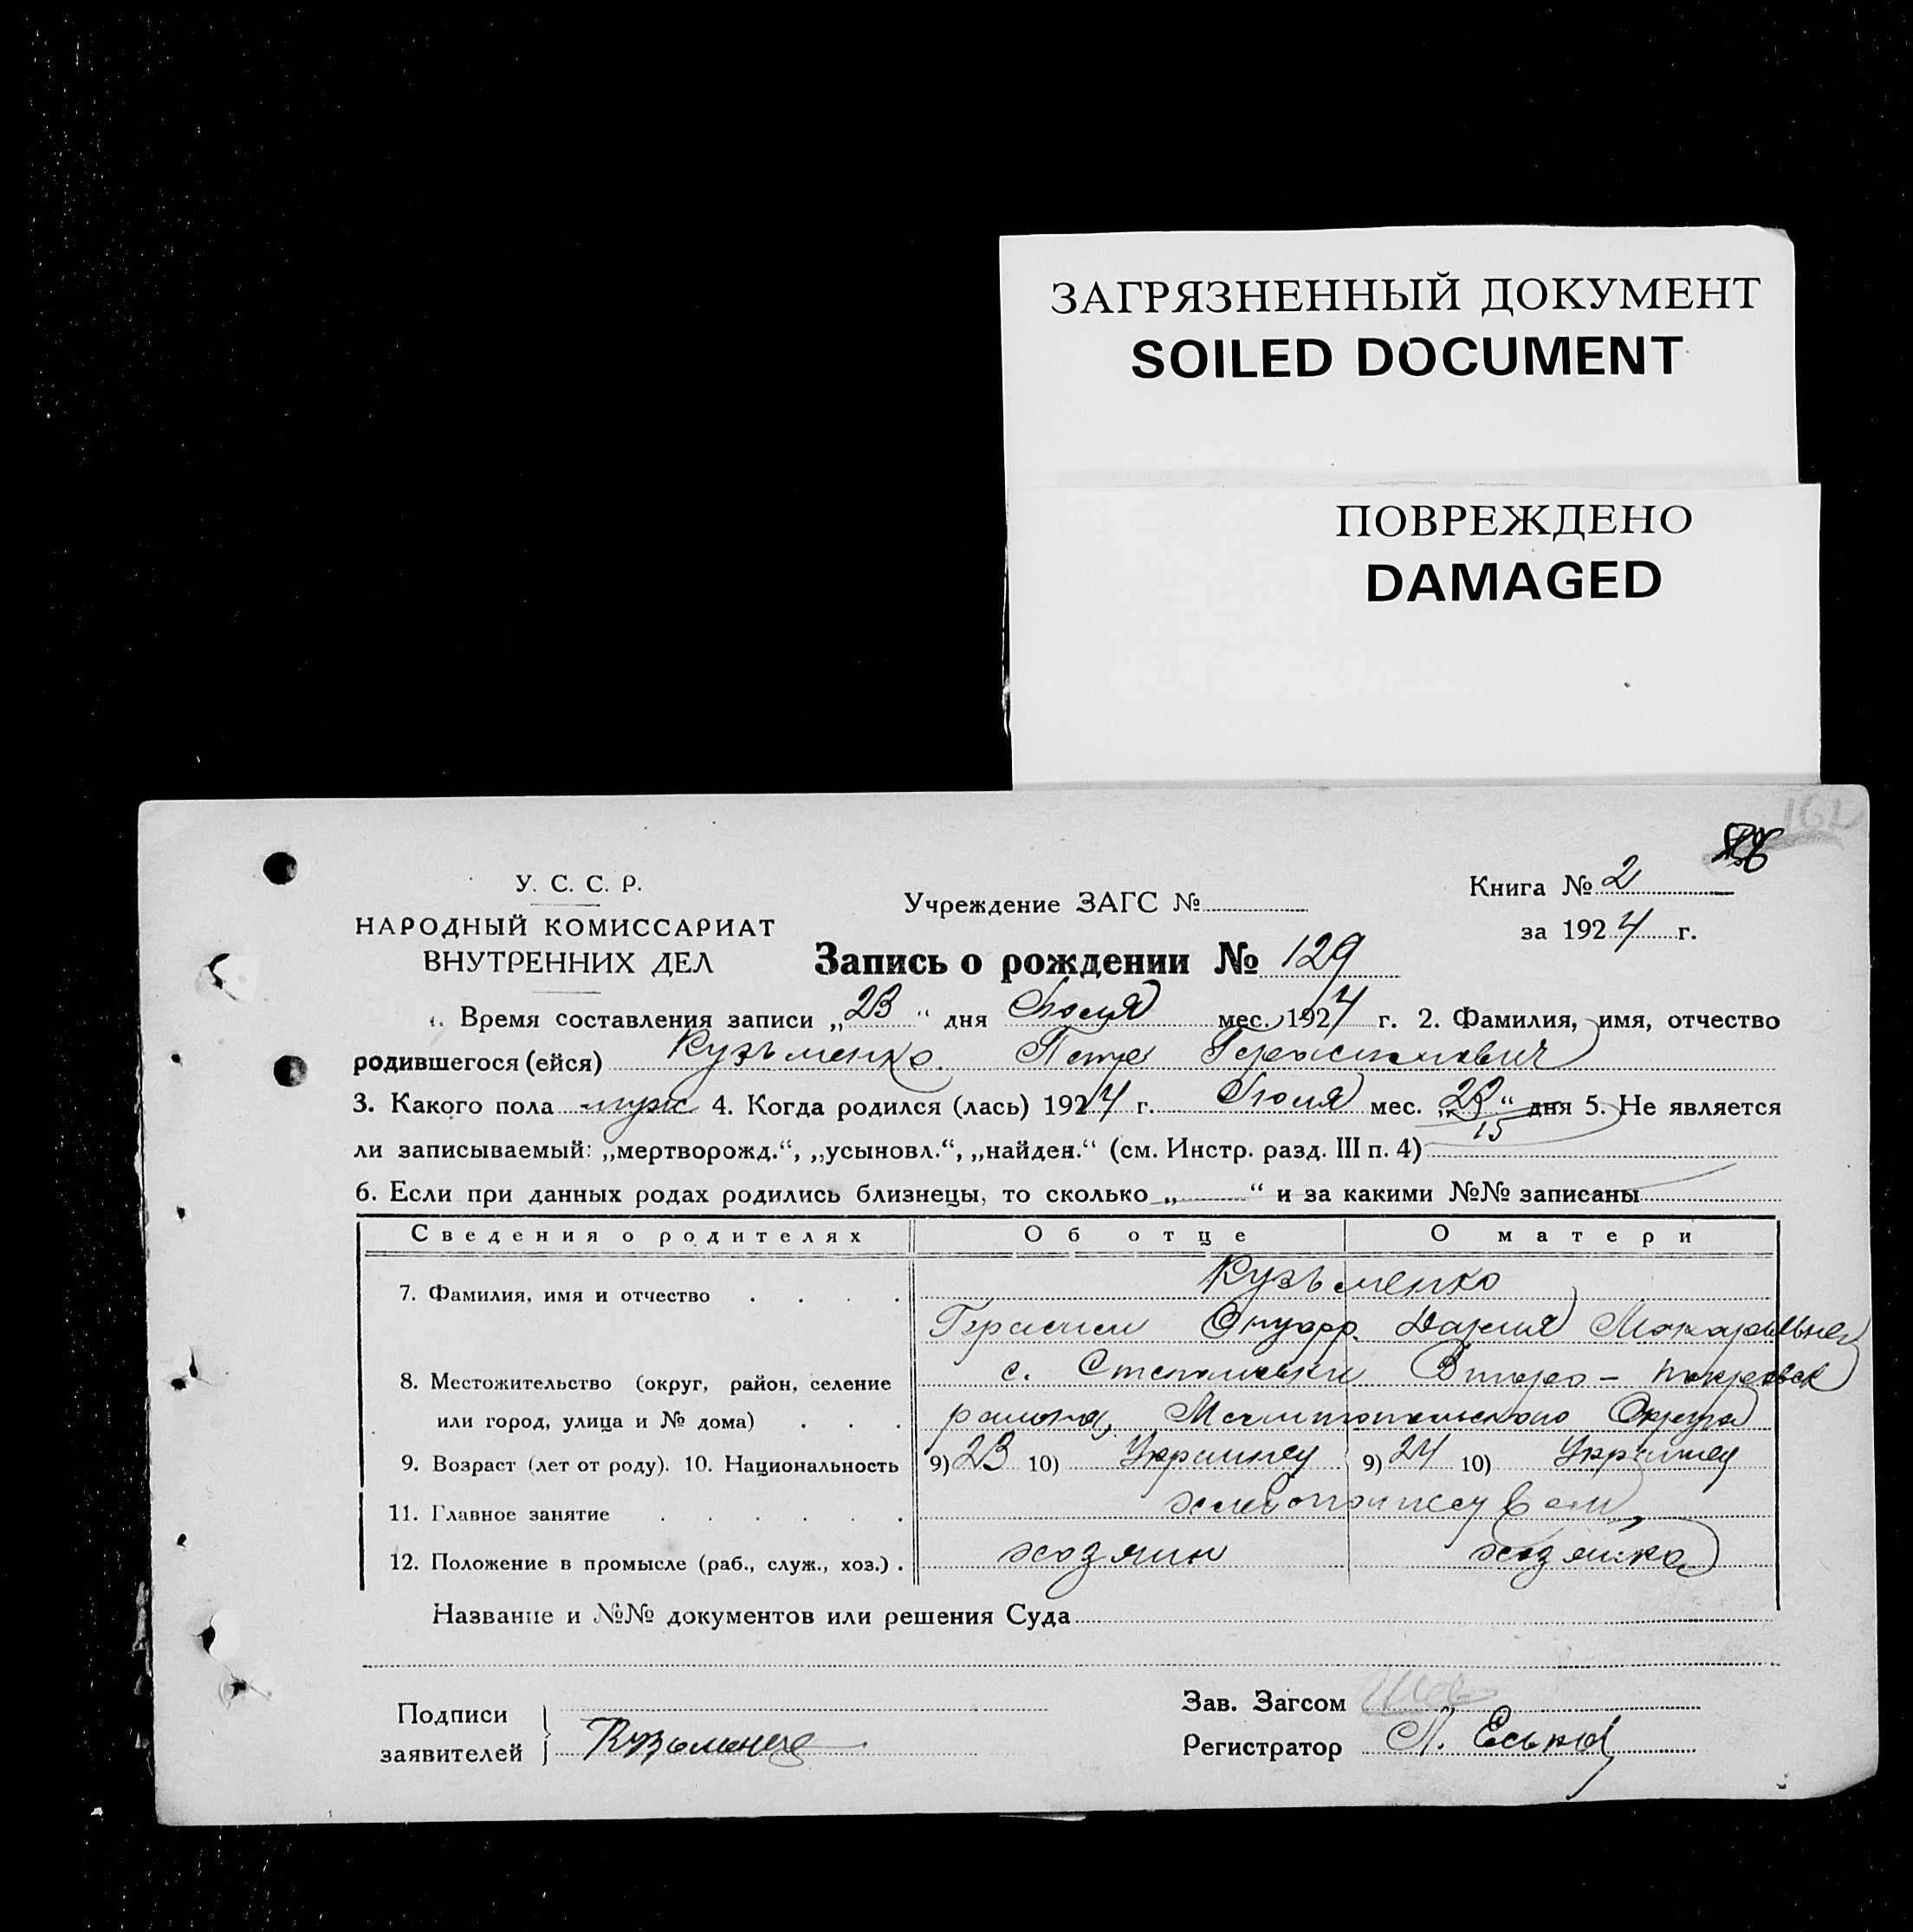 ЗАГРЯЗНЕННЫЙ ДОКУМЕНТ
SOILED DOCUMENT
ПОВРЕЖДЕНО
DAMAGED
162
У. С. С. Р.
НАРОДНЫЙ КОМИССАРИАТ
ВНУТРЕННИХ ДЕЛ
Учреждение ЗАГС №
Книга № 2
за 1924 г.
Запись о рождении № 129
1. Время составления записи „23“ дня Июля мес. 1924 г. 2. Фамилия, имя, отчество
родившегося (ейся) Кузьменко. Петр Герасимович
3. Какого пола муж 4. Когда родился (лась) 1924 г. Июля мес. „23“ дня 5. Не является
15
ли записываемый: „мертворожд.“, „усыновл.“, „найден.“ (см. Инстр. разд. III п. 4)
6. Если при данных родах родились близнецы, то сколько „ “ и за какими №№ записаны
Сведения о родителях Об отце О матери
7. Фамилия, имя и отчество Кузьменко
Герасим Дария
8. Местожительство (округ, район, селение с. Степановки Второ-Покровск
или город, улица и № дома) района, Мелитопольского Округа
9. Возраст (лет от роду). 10. Национальность 9) 23 10) Украинец 9) 24 10) Украинец
11. Главное занятие
12. Положение в промысле (раб., служ., хоз.) хозяин хозяйка
Название и №№ документов или решения Суда
Подписи
заявителей Кузьменко
Зав. Загсом
Регистратор